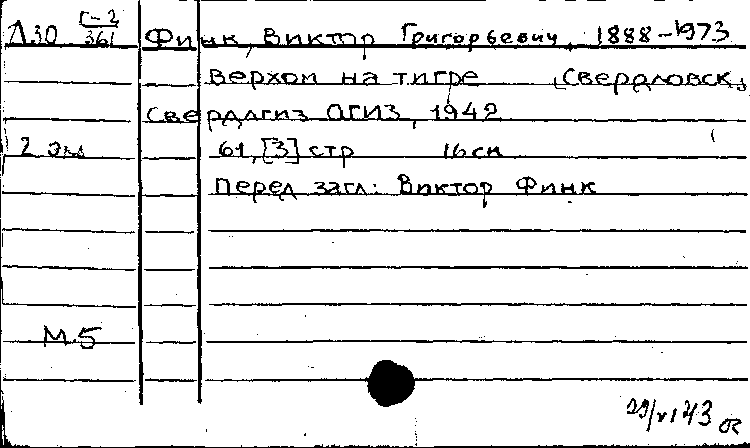 Л30 Г-2/361 Финк, Виктор Григорьевич, 1888-1973
Верхом на тигре [Свердловск]
Свердлгиз ОГИЗ, 1942
2 экз 61, [3] стр 16см
Перед загл: Виктор Финк
М.5